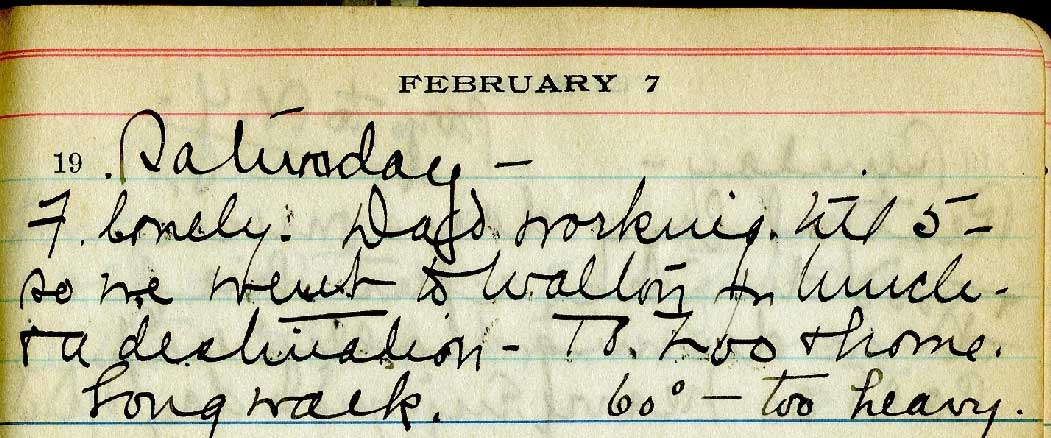 FEBRUARY 7
19 . Saturday –
7. lonely. Dad working. til 5 –
so we went to Walton for lunch -
+ a destination - To. Zoo + home.
Long walk. 60° – too heavy.